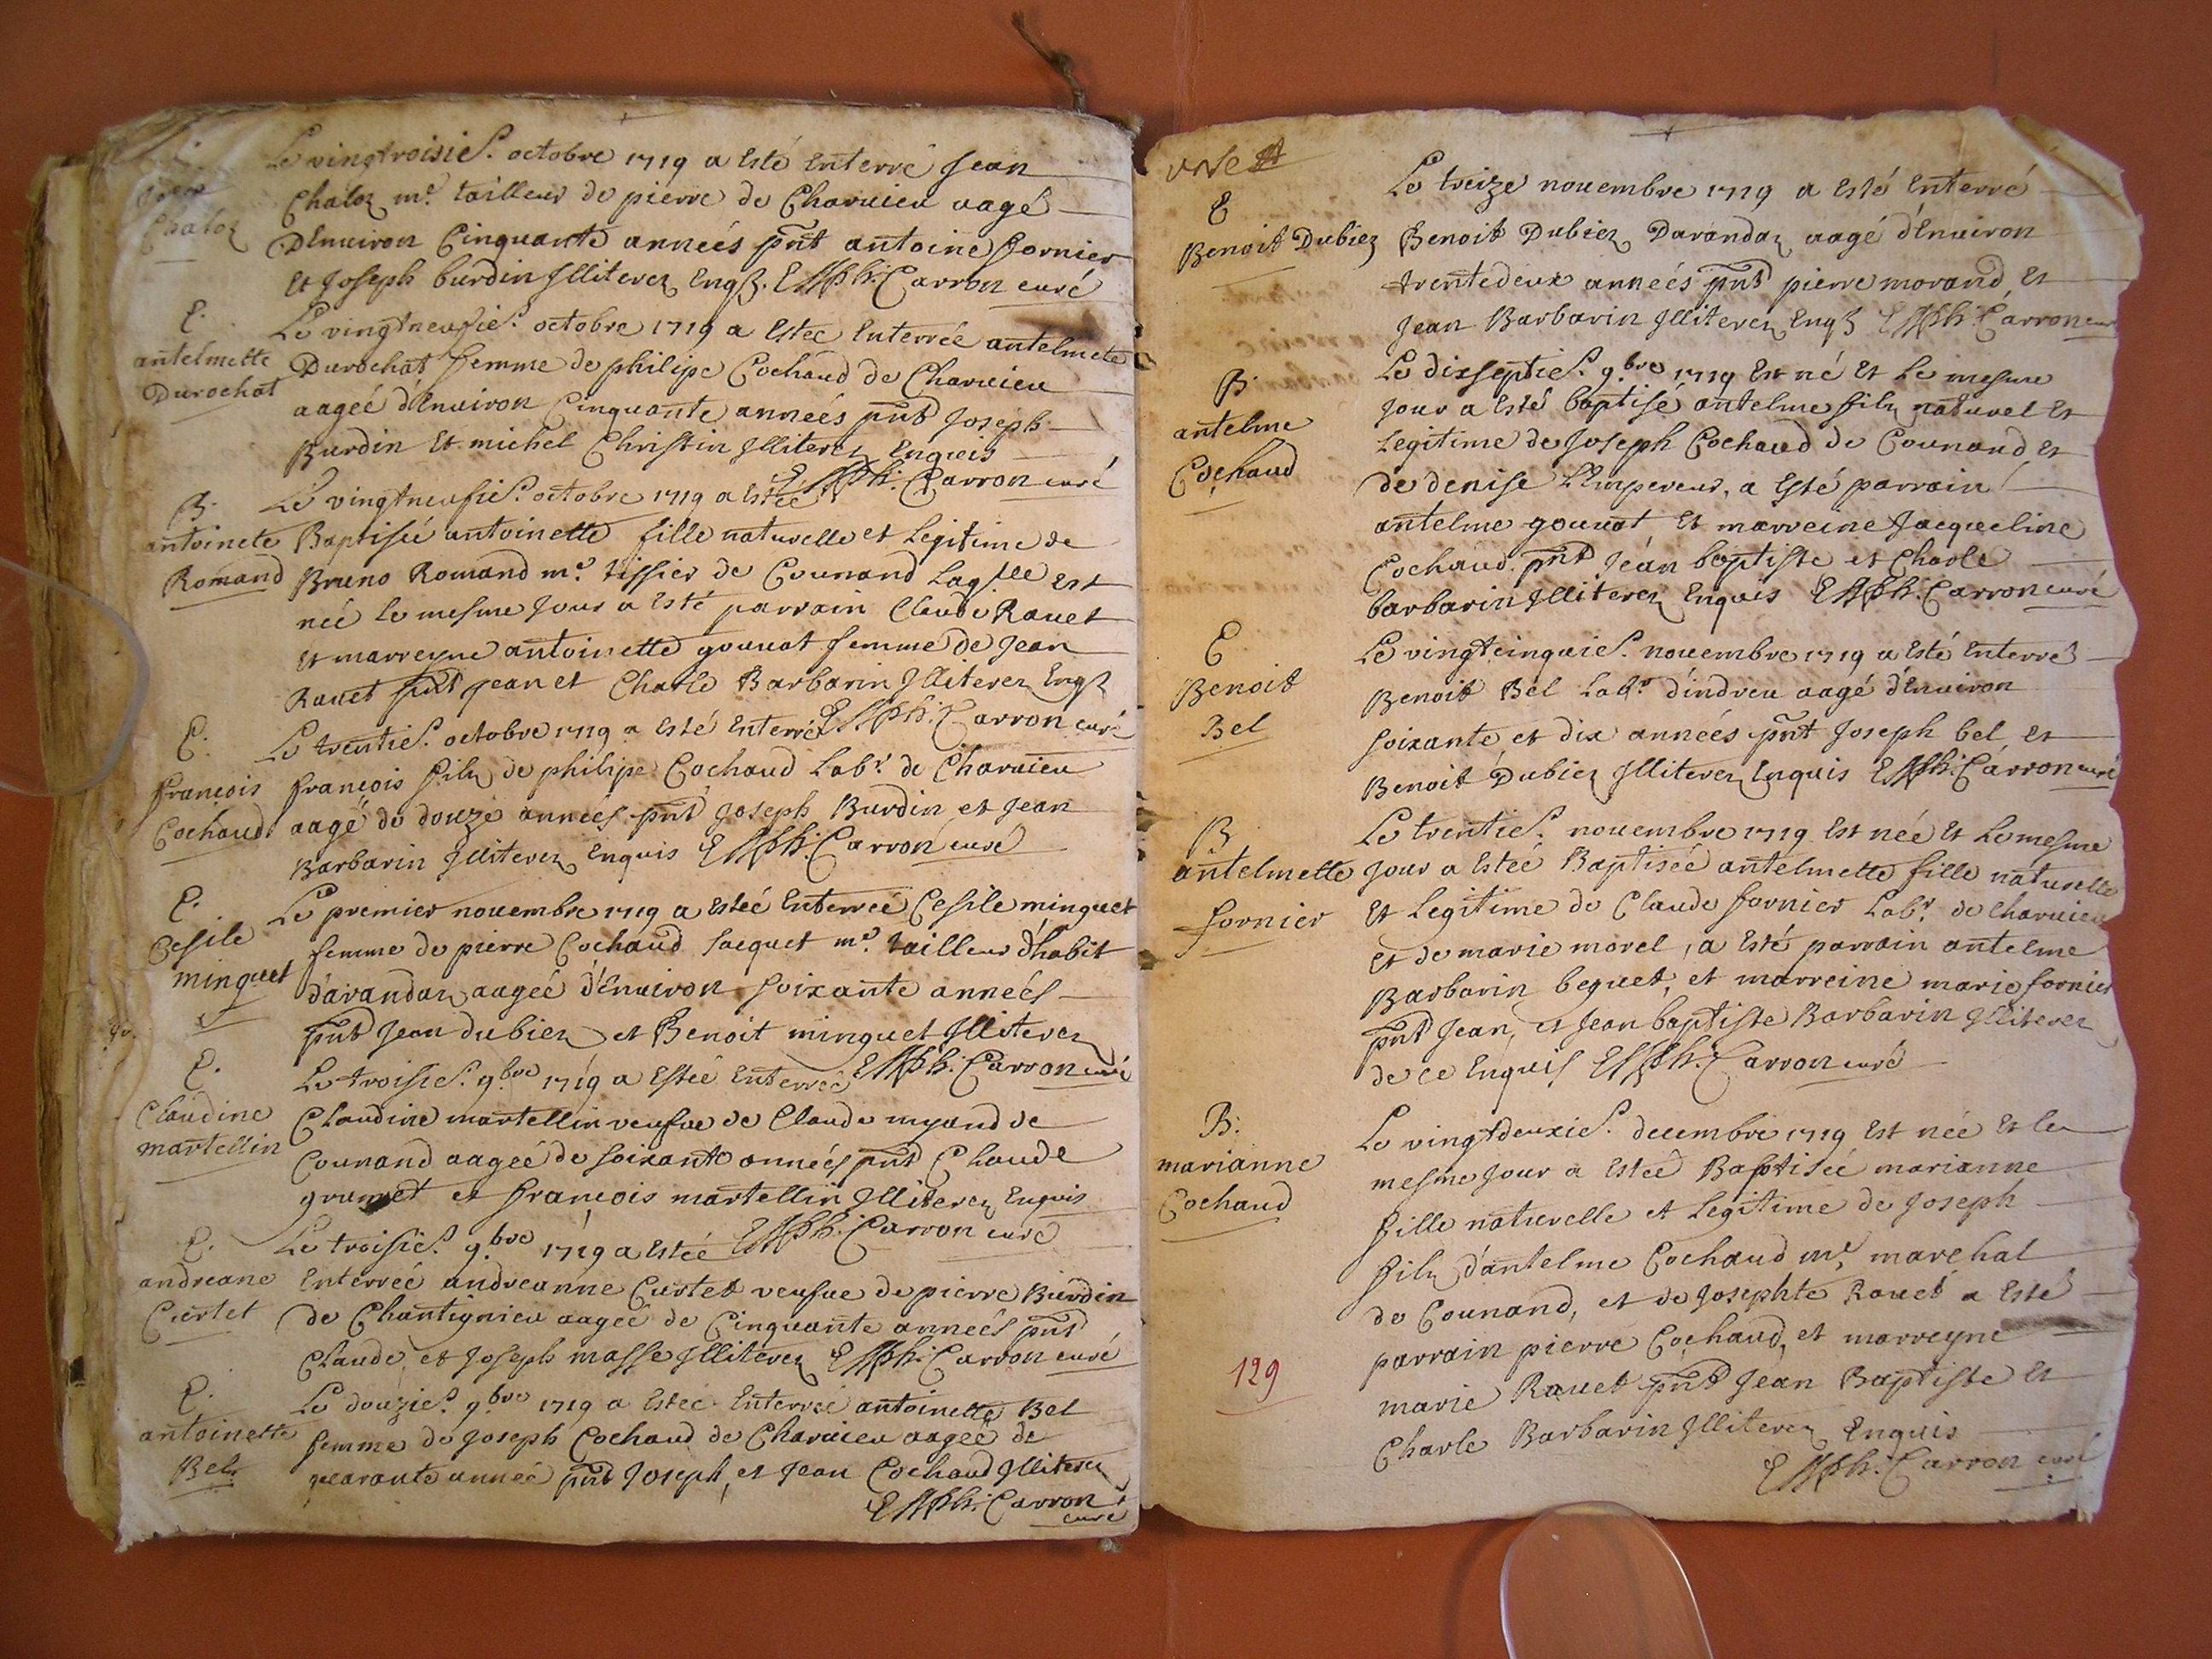 Jean
Chaloz
Le vingtroisie.^e octobre 1719 a Esté Enterré Jean
Chaloz m.^e tailleur de pierre de Charuieu aagé
D'Enuiron Cinquante années pnt antoine fornier
Et Joseph burdin Illiterez Enq.^s Carron curé
E.
antelmette
Durochat
Le vingtneufie.^e octobre 1719 a Estée Enterrée antelmete
Durochat femme de philipe Cochaud de Charuieu
aageé d'Enuiron Cinquante années pnt Joseph
Burdin Et michel Christin Illiterez Enqueis
Carron curé
B.
antoinete
Romand
Le vingtneufie.^e octobre 1719 a Estée
Baptisée antoinette fille naturelle et Legitime de
Bruno Romand m.^e tissier de Counand Laq.^lle Est
née le mesme Jour a Esté parrain Claude Rauet
Et marreyne antoinette gouuat femme de Jean
Rauet pnt Jean et Charle Barbarin Illiterez Enq.^s
Carron curé
E.
françois
Cochaud
Le trentie.^e octobre 1719 a Esté Enterré
françois filz de philipe Cochaud Lab.^r de Charuieu
aagé de douze années pnt Joseph Burdin et Jean
Barbarin Illiterez Enquis Carron curé
E.
Cesile
minguet
Le premier nouembre 1719 a Estée Enterrée Cesile minguet
femme de pierre Cochaud Jacquet m.^e tailleur d'habit
d'arandaz aageé d'Enuiron soixante années
pnt Jean dubiez et Benoit minguet Illiterez
Carron curé
E.
Claudine
martellin
Le troisie.^e 9.^bre 1719 a Estée Enterrée
Claudine martellin veufue de Claude myand de
Counand aageé de soixante années pnt Claude
grumet et françois martellin Illiterez Enquis
Carron curé
E.
andreane
Curtet
Le troisie.^e 9.^bre 1719 a Estée
Enterreé andreanne Curtet veufue de pierre Burdin
de Chantignieu aageé de Cinquante années pnt
Claude, et Joseph masse Illiterez Carron curé
E.
antoinette
Bel
Le douzie.^e 9.^bre 1719 a Estée Enterrée antoinette Bel
femme de Joseph Cochaud de Charuieu aageé de
quarante année pnt Joseph, et Jean Cochaud Illiterez
Carron
curé
E
Benoit Dubiez
Le treize nouembre 1719 a Esté Enterré
Benoit Dubiez Darandaz aagé d'Enuiron
trentedeux années pnt pierre morand, Et
Jean Barbarin Illiterez Enq.^s Carron cur
B.
antelme
Cochaud
Le dixseptie.^e 9.^bre 1719 Est né Et Le mesme
Jour a Esté baptisé antelme filz naturel Et
Legitime de Joseph Cochaud de Counand Et
de denise L'Empereur, a Esté parrain
antelme gouuat, Et marreine Jacqueline
Cochaud. pnt Jean baptiste et Charle
barbarin Illiterez Enquis Carron curé
E
Benoit
Bel
Le vingtcinquie.^e nouembre 1719 a Esté Enterré
Benoit Bel Lab.^r d'indreu aagé d'Enuiron
soixante et dix années pnt Joseph bel, Et
Benoit Dubiez Illiterez Enquis Carron curé
B
antelmette
fornier
Le trentie.^e nouembre 1719 Est née Et Le mesme
Jour a Estée Baptisée antelmette fille naturelle
Et Legitime de Claude fornier Lab.^r de Charuieu
Et de marie morel, a Esté parrain antelme
Barbarin bequet, et marreine marie fornier
pnt Jean, et Jean baptiste Barbarin Illiterez
de ce Enquis Carron curé
B.
marianne
Cochaud
Le vingtdeuxie.^e decembre 1719 Est née Et Le
mesme Jour a Estée Baptisée marianne
fille naturelle et Legitime de Joseph
filz d'antelme Cochaud m.^e marechal
de Counand, et de Josephte Rauet a Esté
parrain pierre Cochaud, et marreyne
marie Rauet pnt Jean Baptiste Et
Charle Barbarin Illiterez Enquis
Carron curé
129